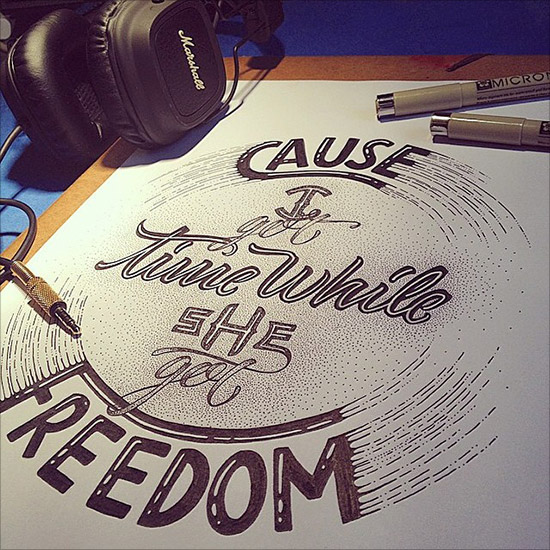 Marshall
MICRON
CAUSE
I
got
time While
SHE
got
FREEDOM